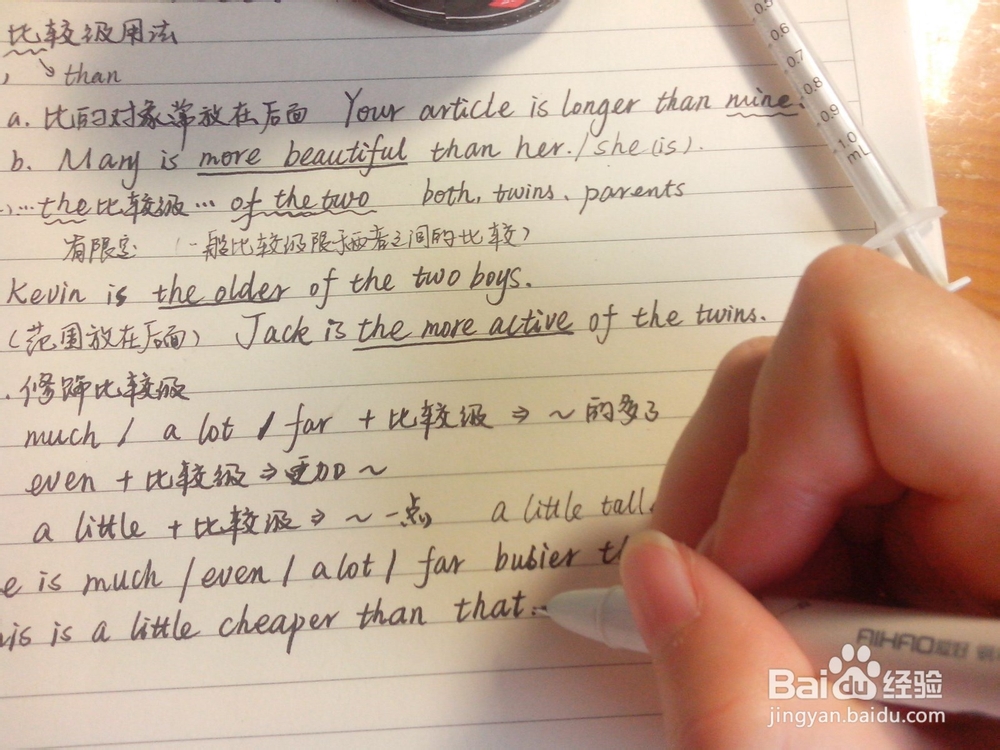 比较级用法
than
a. 比的对象常放在后面 Your article is longer than mine.
b. Mary is more beautiful than her. / she (is).
... the 比较级 ... of the two both, twins, parents
有限定 (一般比较级限于两者之间的比较)
Kevin is the older of the two boys.
(范围放在后面) Jack is the more active of the twins.
修饰比较级
much / a lot / far + 比较级 ⇒ ~的多了
even + 比较级 ⇒ 更加~
a little + 比较级 ⇒ ~一点 a little tall
e is much / even / a lot / far busier th
his is a little cheaper than that.
0.5
0.6
0.7
0.8
0.9
1.0
mL
AIHAO 爱好
Baidu 经验
jingyan.baidu.com